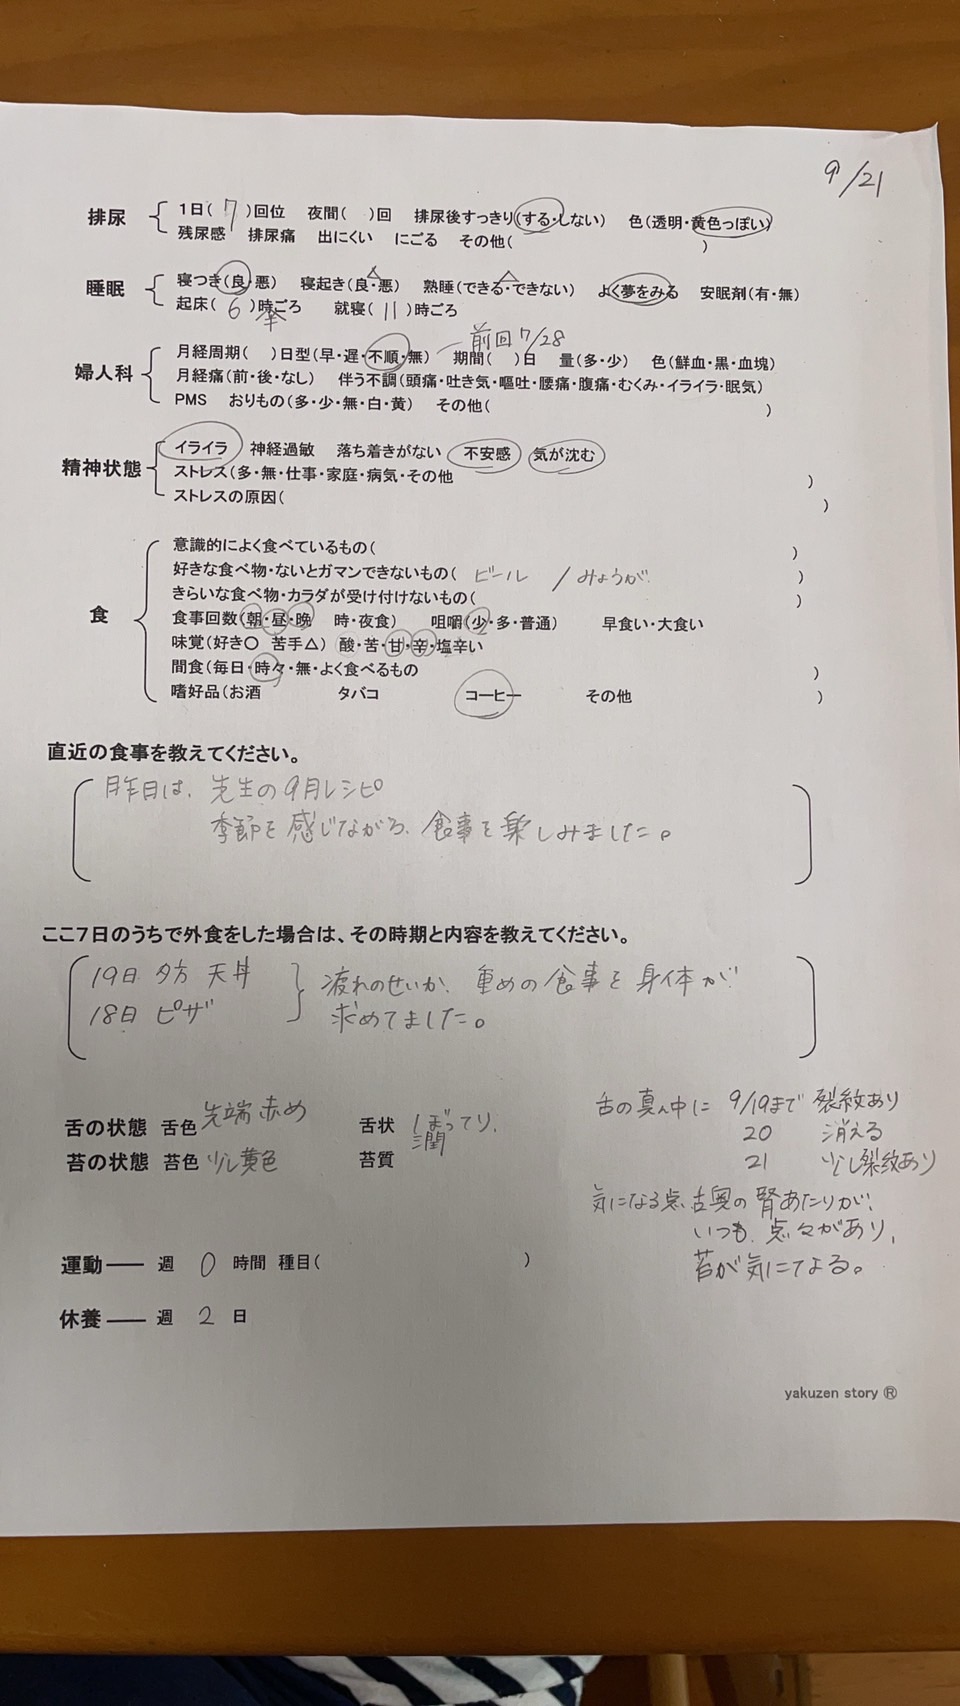 9/21
排尿 1日( 7 )回位 夜間( )回 排尿後すっきり(する・しない) 色(透明・黄色っぽい)
残尿感 排尿痛 出にくい にごる その他( )
睡眠 寝つき(良・悪) 寝起き(良・悪) 熟睡(できる・できない) よく夢をみる 安眠剤(有・無)
起床( 6半 )時ごろ 就寝( 11 )時ごろ
前回 7/28
婦人科 月経周期( )日型(早・遅・不順・無) 期間( )日 量(多・少) 色(鮮血・黒・血塊)
月経痛(前・後・なし) 伴う不調(頭痛・吐き気・嘔吐・腰痛・腹痛・むくみ・イライラ・眠気)
PMS おりもの(多・少・無・白・黄) その他( )
精神状態 イライラ 神経過敏 落ち着きがない 不安感 気が沈む
ストレス(多・無・仕事・家庭・病気・その他 )
ストレスの原因( )
食 意識的によく食べているもの( )
好きな食べ物・ないとガマンできないもの( ビール / みょうが )
きらいな食べ物・カラダが受け付けないもの( )
食事回数(朝・昼・晩 時・夜食) 咀嚼(少・多・普通) 早食い・大食い
味覚(好き〇 苦手△) 酸・苦・甘・辛・塩辛い
間食(毎日・時々・無・よく食べるもの )
嗜好品(お酒 タバコ コーヒー その他 )
直近の食事を教えてください。
昨日は、先生の9月レシピ
季節を感じながら、食事を楽しみました。
ここ7日のうちで外食をした場合は、その時期と内容を教えてください。
19日 夕方 天丼 疲れのせいか、重めの食事を身体が
18日 ピザ 求めてました。
舌の状態 舌色 先端赤め 舌状 ぼってり、
潤
苔の状態 苔色 少し黄色 苔質
舌の真ん中に 9/19まで 裂紋あり
20 消える
21 少し裂紋あり
気になる点 舌奥の腎あたりが、
いつも、点々があり、
苔が気にてよる。
運動―― 週 0 時間 種目( )
休養―― 週 2 日
yakuzen story ®